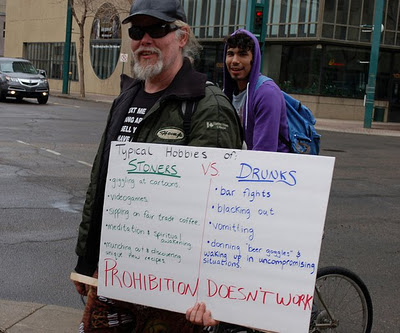 Typical Hobbies of:
STONERS VS DRUNKS
• giggling at cartoons.
• videogames.
• sipping on fair trade coffee.
• meditation & spiritual
awakening.
• munching out & discovering
unique new recipes.
• bar fights
• blacking out
• vomitting
• donning "beer goggles" &
waking up in uncompromising
situations.
PROHIBITION DOESN'T WORK